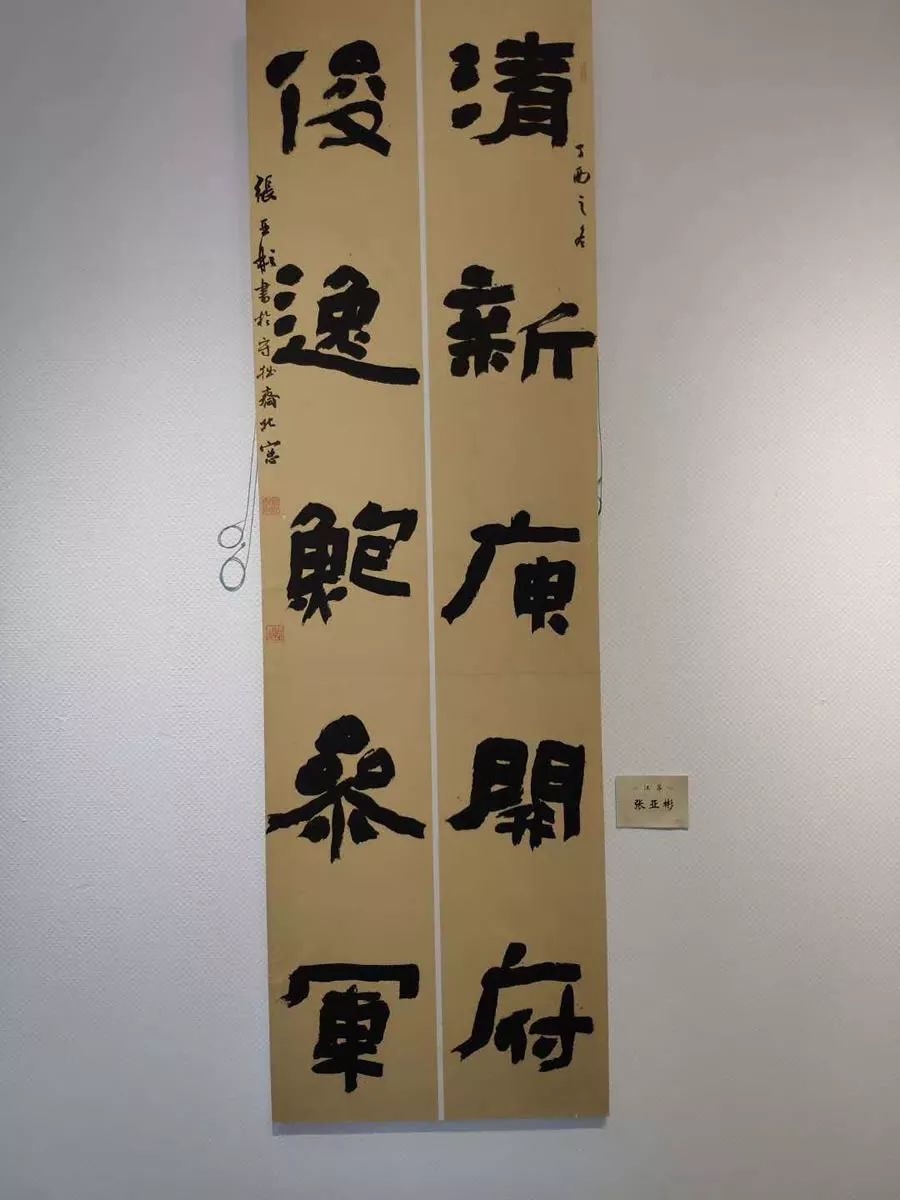 清新庾開府
丁酉之冬
俊逸鮑參軍
張亚彬書於守拙齋北窓
江苏
张亚彬